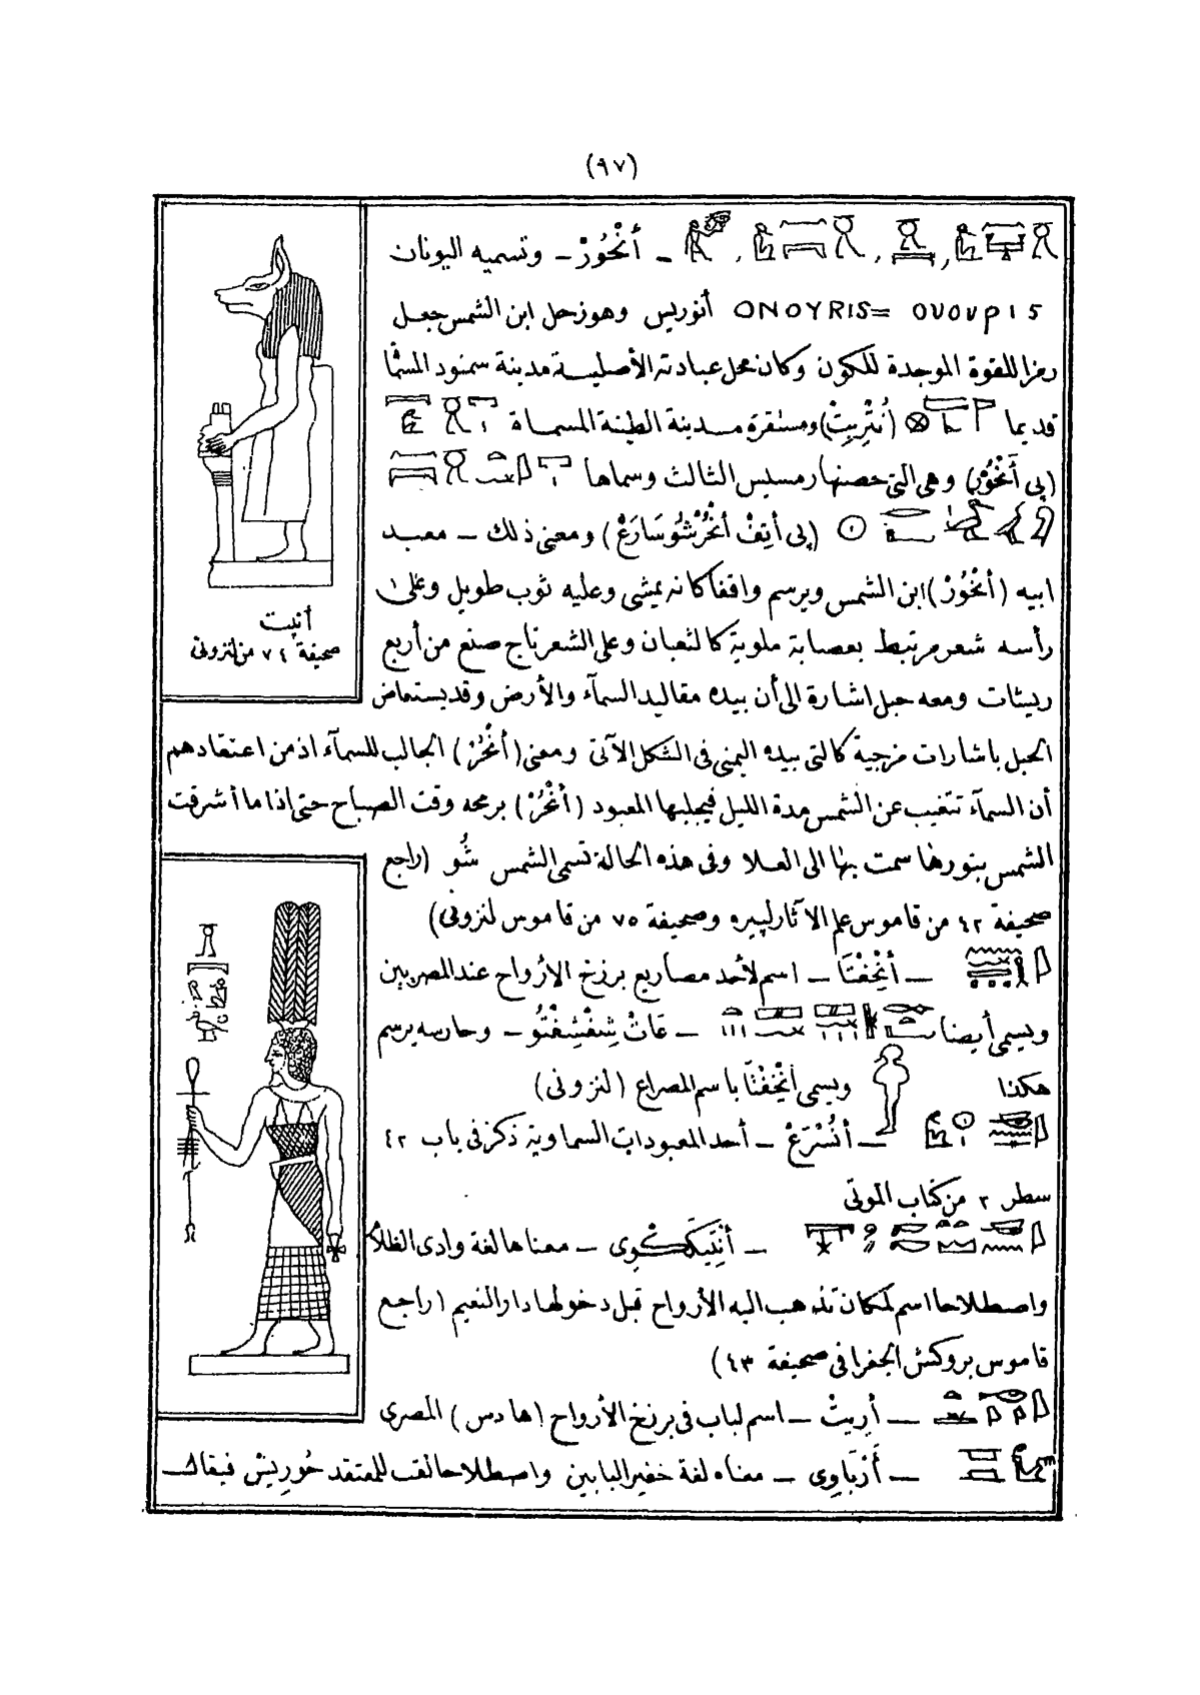 (٩٧)
ـ أَنْحُورْ ـ وتسميه اليونان
ONOYRIS= ονουρις أنوريس وهو زحل ابن الشمس جعل
رمزا للقوة الموجدة للكون وكان محل عبادته الأصليـة مدينة سمنود المسماة
قديما (نُتِّرِيتْ) ومستقره مدينة الطينة المسماة
(پى أَنْحُورِى) وهى التى حصنها رمسيس الثالث وسماها
(پى أتِفْ أنْحُرْشُوسَارَعْ) ومعنى ذلك ـ معبد
ابيه (أنْحُورْ) ابن الشمس ويرسم واقفا كانه يمشى وعليه ثوب طويل وعلى
رأسه شعر مرتبط بعصابة ملوية كالثعبان وعلى الشعر تاج صنع من أربع
ريشات ومعه حبل اشارة الى أن بيده مقاليد السمآء والأرض وقد يستعاض
الحبل باشارات مزجية كالتى بيده اليمنى فى الشكل الآتى ومعنى (أنْحُرْ) الجالب للسمآء اذ من اعتقادهم
أن السمآء تتغيب عن الشمس مدة الليل فيجلبها المعبود (أنْحُرْ) برمحه وقت الصباح حتى اذا ما أشرقت
الشمس بنورها سمت بها الى العلا وفى هذه الحالة تسمى الشمس شُو (راجع
صحيفة ٤٢ من قاموس علم الآثار لپييره وصحيفة ٧٥ من قاموس لنزونى)
ـ أَنْخِفْتَا ـ اسم لأحد مصاريع برزخ الأرواح عند المصريين
ويسمى أيضا ـ عَاتْ شِفْشِفْتُو ـ وحارسه يرسم
هكذا ويسمى أنْخِفْتَا باسم المصراع (لنزونى)
ـ أَنُسْرَعْ ـ أحد المعبودات السماوية ذكر فى باب ٤٢
سطر ٢ من كتاب الموتى
ـ أَنْتِيكَكُوِى ـ معناها لغة وادى الظلام
واصطلاحا اسم لمكان تذهب اليه الأرواح قبل دخولها دار النعيم (راجع
قاموس بروكش الجغرافى صحيفة ٤٣)
ـ أرِيتْ ـ اسم لباب فى برزخ الأرواح (هادس) المصرى
ـ أَرْبَاوِى ـ معناه لغة خفير البابين واصطلاحا لقب للمعتقد حُورِيسْ فيقال
أنپت
صحيفة ٧٤ من لنزونى